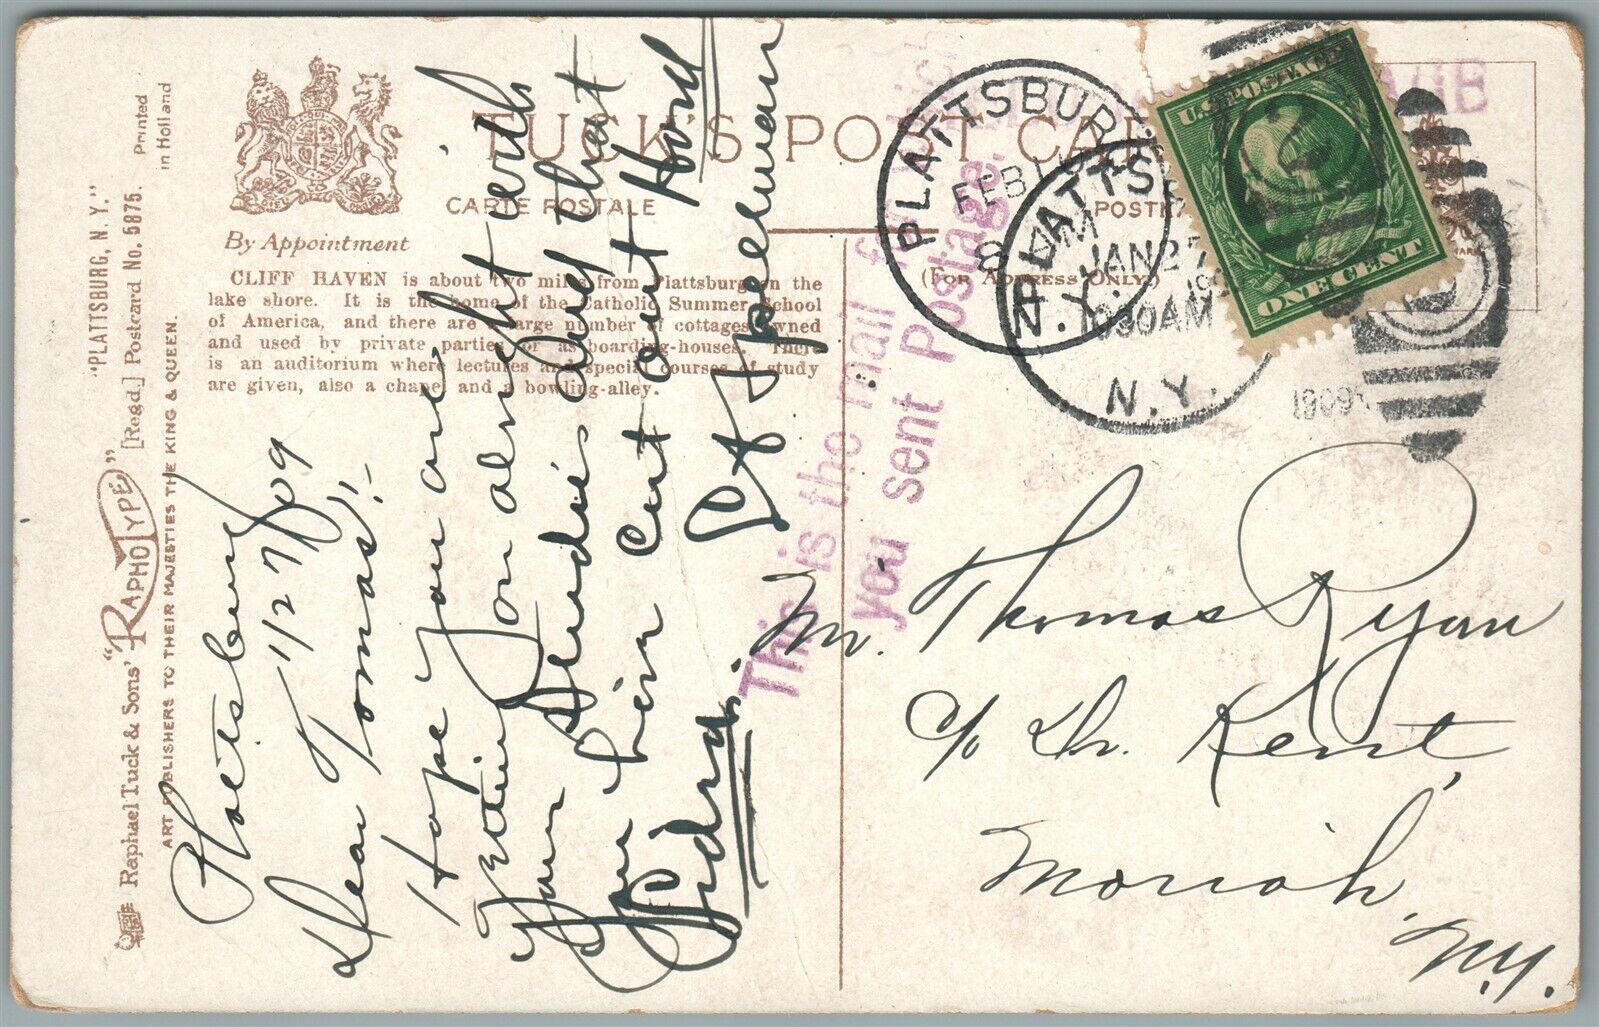 "PLATTSBURG, N. Y."
Raphael Tuck & Sons' "RAPHOTYPE" [Regd.] Postcard No. 5875. Printed in Holland
ART PUBLISHERS TO THEIR MAJESTIES THE KING & QUEEN.
By Appointment
TUCK'S POST CARD
CARTE POSTALE
POSTKA
(FOR ADDRESS ONLY.)
CLIFF HAVEN is about two miles from Plattsburg on the
lake shore. It is the home of the Catholic Summer School
of America, and there are a large number of cottages owned
and used by private parties or as boarding-houses. There
is an auditorium where lectures and special courses of study
are given, also a chapel and a bowling-alley.
Plattsburg
1/27/09
Dear Tomas!-
Hope you are
getting on alright with
your Studies and that
you hire Cut out Hord
Sidra.
C A Spellman
This is the mail for which
you sent Postage.
PLATTSBURG
FEB
8 AM
N.Y.
PLATTSB
JAN 27
1030AM
N.Y.
1909
2
U.S. POSTAGE
ONE CENT
Mr. Thomas Ryan
c/o Dr. Kent,
Moriah,
N.Y.